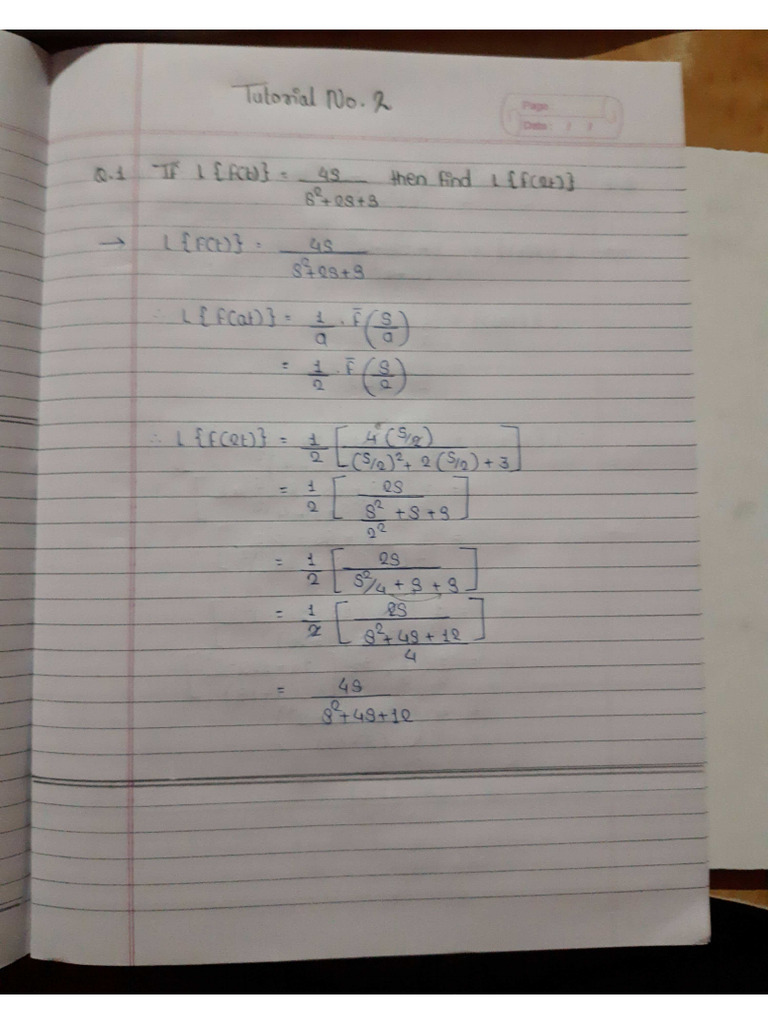 Tutorial No. 2
Page:
Date: / /
Q.1 If L{f(t)} = 4s/(s²+2s+3) then find L{f(2t)}
→ L{f(t)} = 4s/(s²+2s+3)
∴ L{f(at)} = 1/a . f̄(s/a)
= 1/2 . f̄(s/2)
∴ L{f(2t)} = 1/2 [4(s/2)/((s/2)² + 2(s/2) + 3)]
= 1/2 [2s/(s²/2² + s + 3)]
= 1/2 [2s/(s²/4 + s + 3)]
= 1/2 [2s/((s²+4s+12)/4)]
= 4s/(s²+4s+12)